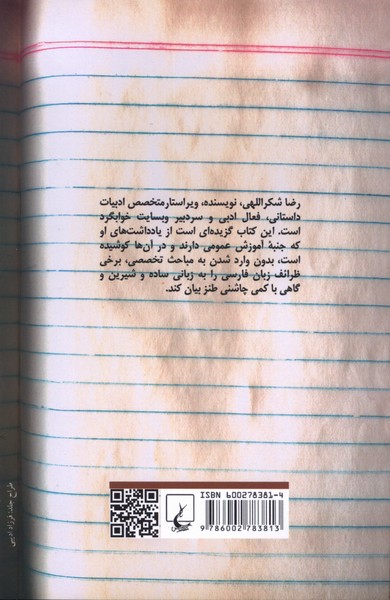 رضا شکراللهی، نویسنده، ویراستار متخصص ادبیات
داستانی، فعال ادبی و سردبیر وبسایت خوابگرد
است. این کتاب گزیده‌ای است از یادداشت‌های او
که جنبهٔ آموزش عمومی دارند و در آن‌ها کوشیده
است، بدون وارد شدن به مباحث تخصصی، برخی
ظرائف زبان فارسی را به زبانی ساده و شیرین و
گاهی با کمی چاشنی طنز بیان کند.
ISBN 600278381-4
9 786002 783813
طراح جلد: فرزاد ادیبی